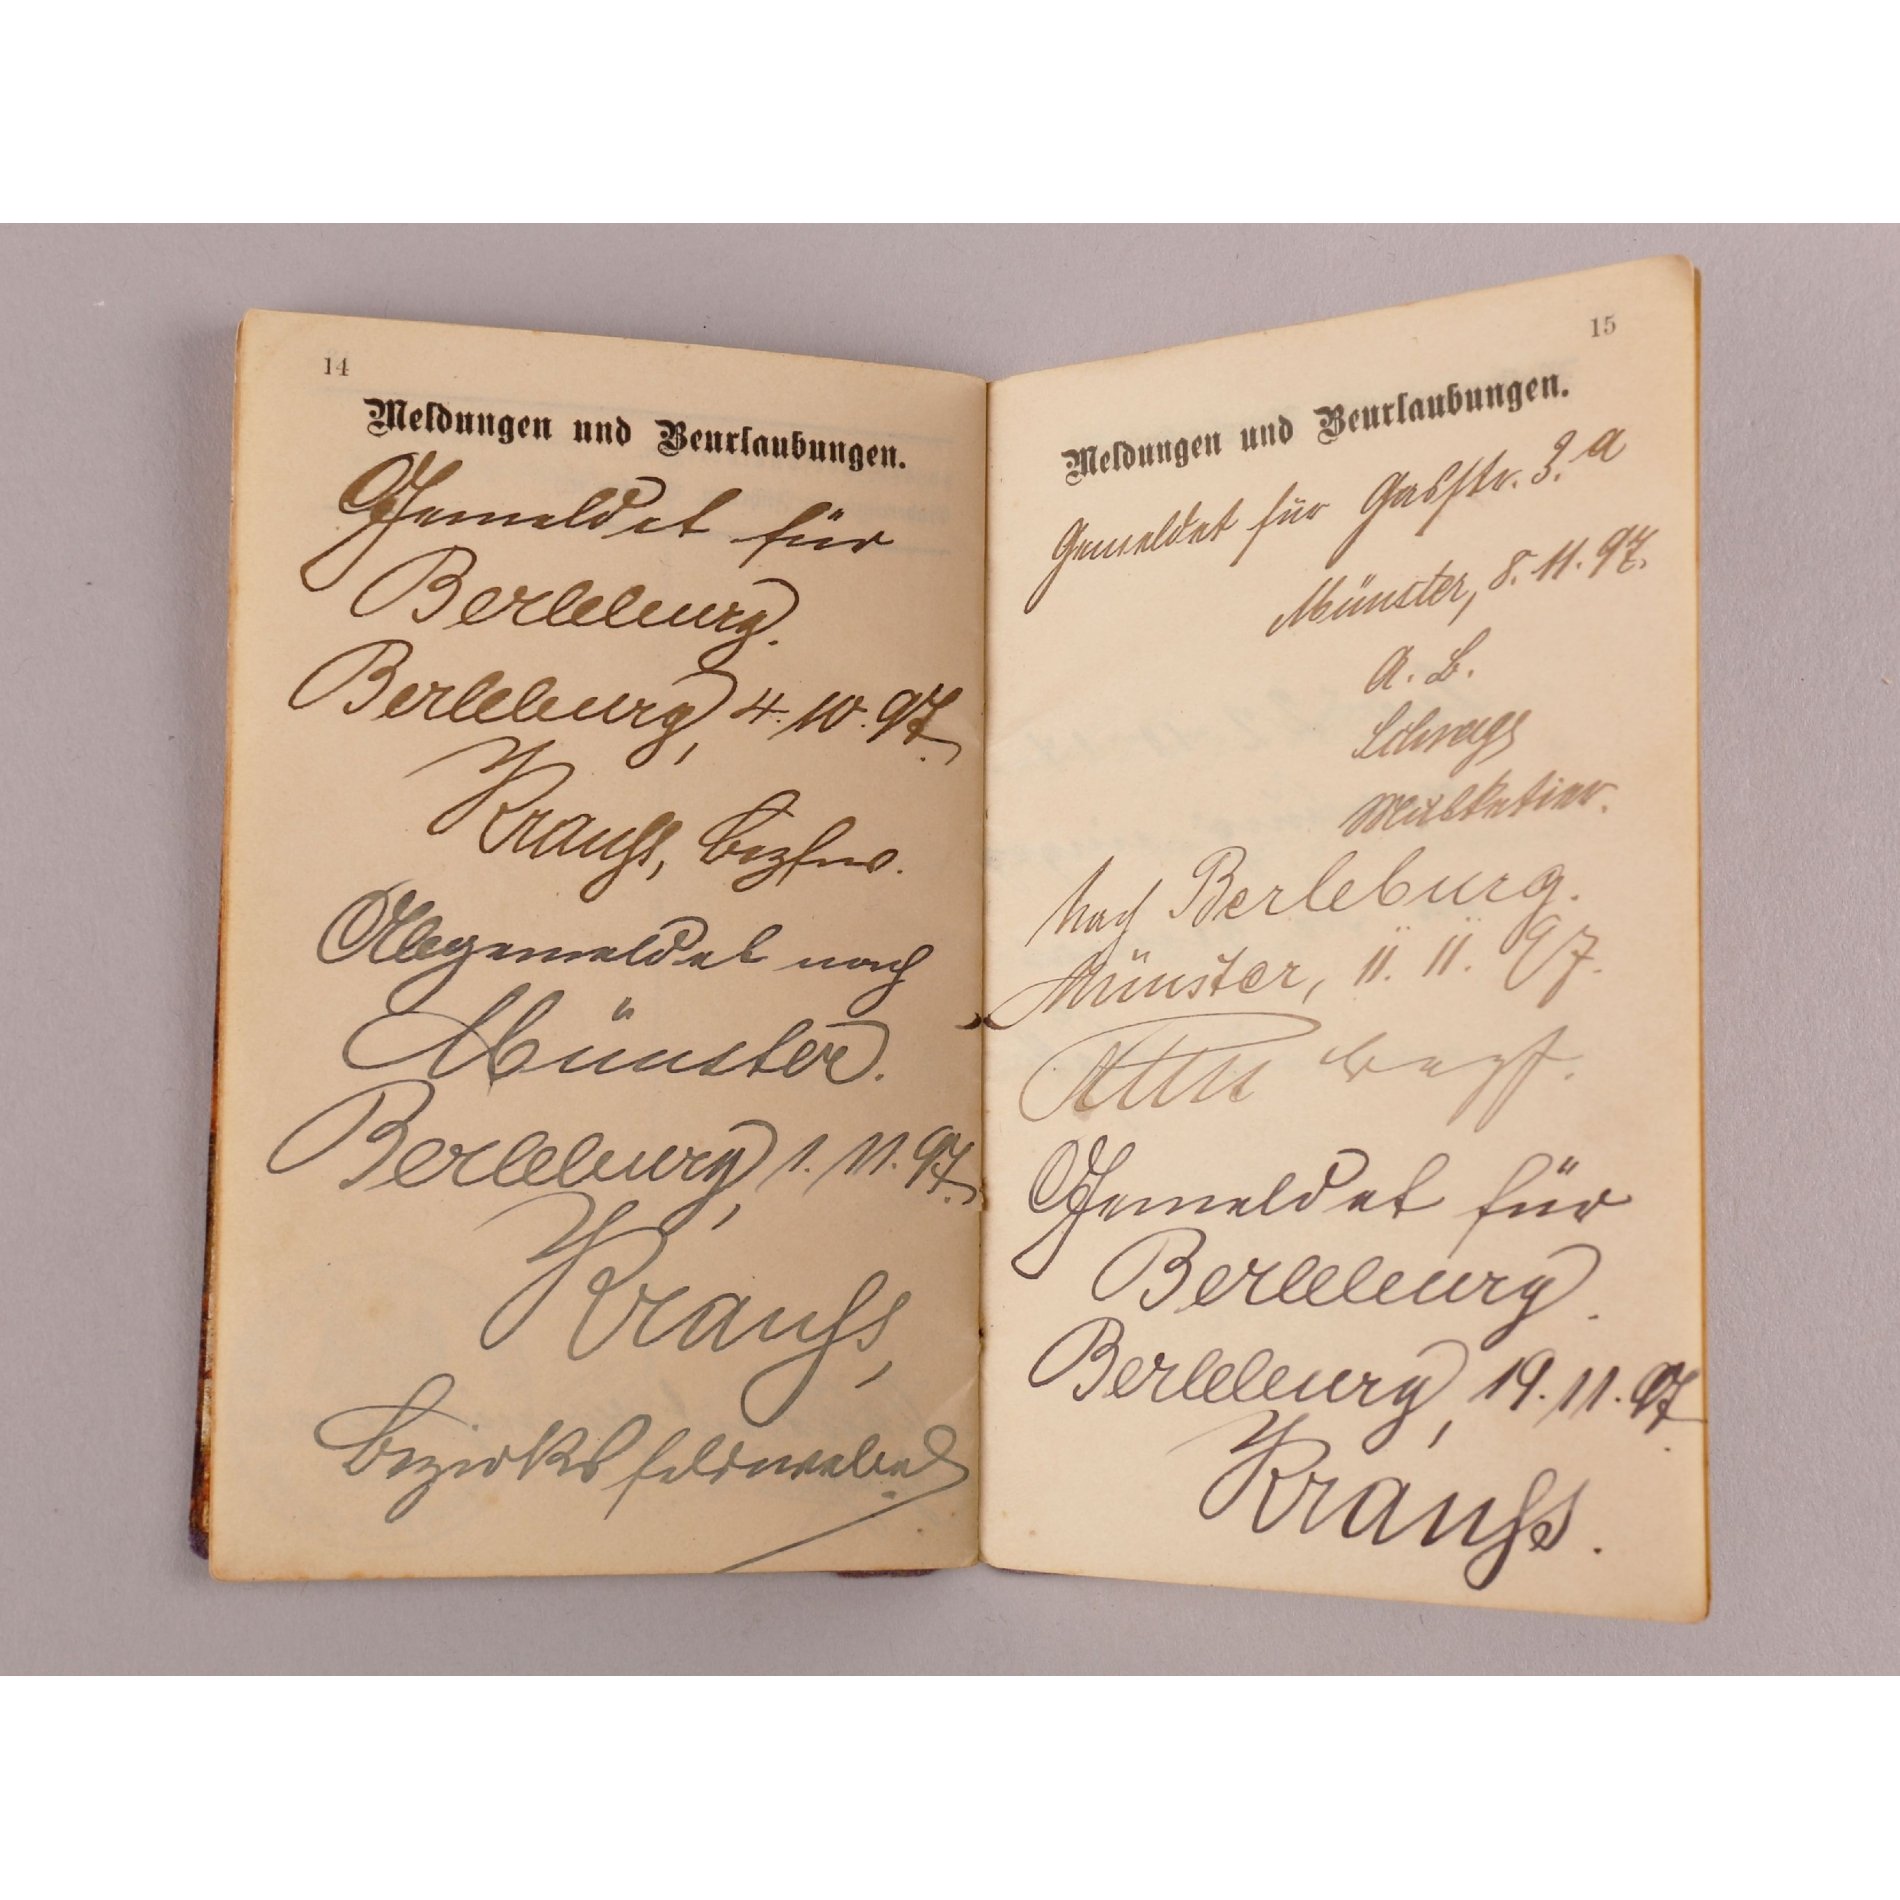 14
Meldungen und Beurlaubungen.
Gemeldet für
Berleburg.
Berleburg, 4.10.97.
Krauss, Bezfw.
Abgemeldet nach
Münster.
Berleburg, 1.11.97.
Krauss,
Bezirksfeldwebel
15
Meldungen und Beurlaubungen.
Gemeldet für Gasstr. 3.a
Münster, 8.11.97.
A. B.
Musketier.
Nach Berleburg.
Münster, 11. 11. 97.
Bezf.
Gemeldet für
Berleburg.
Berleburg, 19.11.97.
Krauss.